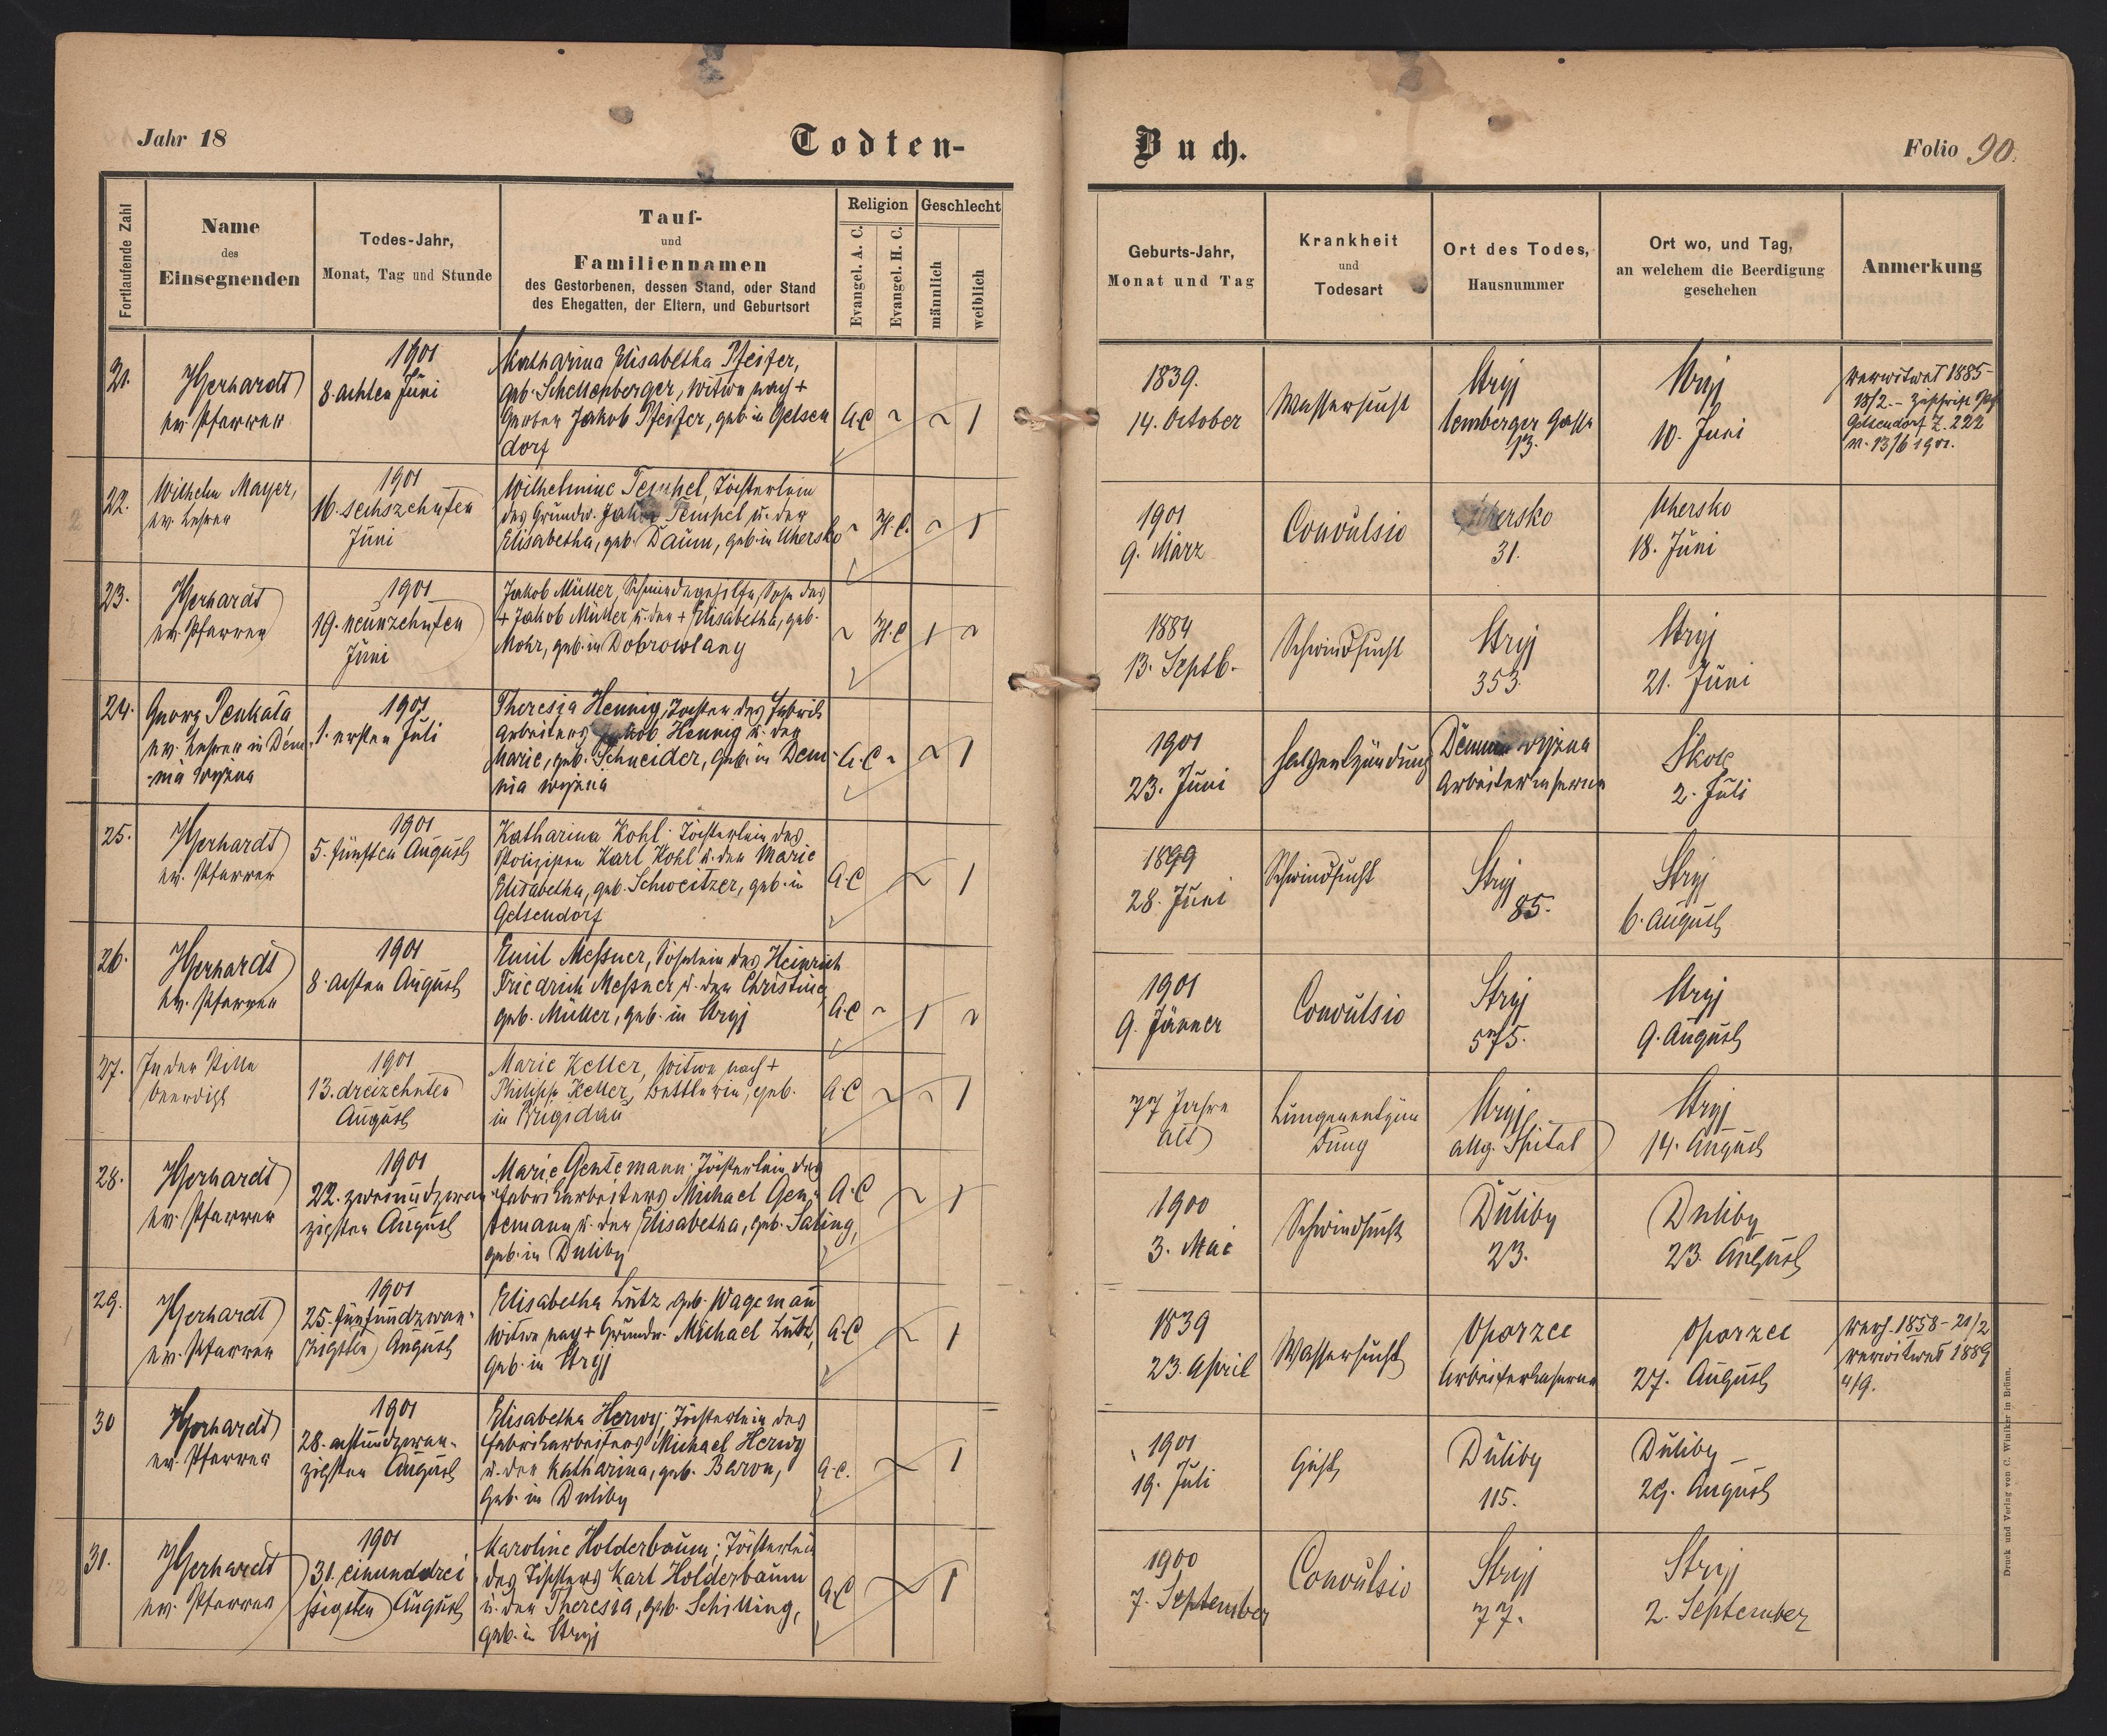 Jahr 18
Todten-
Buch.
Folio 90.
Fortlaufende Zahl
Name
des
Einsegnenden
Todes-Jahr,
Monat, Tag und Stunde
Tauf-
und
Familiennamen
des Gestorbenen, dessen Stand, oder Stand
des Ehegatten, der Eltern, und Geburtsort
Religion
Evangel. A. C.
Evangel. H. C.
Geschlecht
männlich
weiblich
Geburts-Jahr,
Monat und Tag
Krankheit
und
Todesart
Ort des Todes,
Hausnummer
Ort wo, und Tag,
an welchem die Beerdigung
geschehen
Anmerkung
21.
Gerhardt
ev. Pfarrer
1901
8. achten Juni
Katharina Elisabetha Pfeifer,
geb. Schellenberger, Witwe nach +
Jakob Pfeifer, geb. in Gelsen
dorf
A.C
1
1839.
14. October
Wassersucht
Stryj
Lemberger Gasse
13.
Stryj
10. Juni
verwitwet 1885-
18/2. - Zuschrift
Gelsendorf Z. 222
v. 13/6 1901.
22.
Wilhelm Mayer,
ev. Lehrer
1901
16. sechszehnten
Juni
Wilhelmine Tempel, Töchterlein
des Grundw. Jakob Tempel u. der
Elisabetha, geb. Daum, geb. in Uhersko
H.C.
1
1901
9. März
Convulsio
Uhersko
31.
Uhersko
18. Juni
23.
Gerhardt
ev. Pfarrer
1901
19. neunzehnten
Juni
Jakob Müller, Schmiedegehilfe, Sohn des
+ Jakob Müller u. der + Elisabetha, geb.
Mohr, geb. in Dobrowlany
H.C
1
1884
13. Septb.
Schwindsucht
Stryj
353.
Stryj
21. Juni
24.
Georg Penkala
ev. Lehrer in Dem-
nia wyżna
1901
1. ersten Juli
Theresia Hennig, Tochter des Fabriks
Arbeiters Jakob Hennig u. der
Marie, geb. Schneider, geb. in Dem-
nia wyżna
A.C
1
1901
23. Juni
Halsentzündung
Demnia wyżna
Arbeiterkaserne
Skole
2. Juli
25.
Gerhardt
ev. Pfarrer
1901
5. fünften August
Katharina Kohl, Töchterlein des
Polizisten Karl Kohl u. der Marie
Elisabetha, geb. Schweitzer, geb. in
Gelsendorf
A.C
1
1899
28. Juni
Schwindsucht
Stryj
85.
Stryj
6. August
26.
Gerhardt
ev. Pfarrer
1901
8. achten August
Emil Meßner, Söhnlein des Heinrich
Friedrich Meßner u. der Christine
geb. Müller, geb. in Stryj
A.C
1
1901
9. Jänner
Convulsio
Stryj
575.
Stryj
9. August
27.
In der Stille
beerdigt
1901
13. dreizehnten
August
Marie Keller, Witwe nach +
Philipp Keller, Bettlerin, geb.
in Brigidau
A.C
1
77 Jahre
alt
Lungenentzün
dung
Stryj
allg. Spital
Stryj
14. August
28.
Gerhardt
ev. Pfarrer
1901
22. zweiundzwan
zigsten August
Marie Gentemann, Töchterlein des
Fabriksarbeiters Michael Gen-
temann u. der Elisabetha, geb. Saling,
geb. in Duliby
A.C
1
1900
3. Mai
Schwindsucht
Duliby
23.
Duliby
23. August
29.
Gerhardt
ev. Pfarrer
1901
25. fünfundzwan-
zigsten August
Elisabetha Lutz geb. Wagemann
Witwe nach + Grundw. Michael Lutz,
geb. in Stryj
A.C
1
1839
23. April
Wassersucht
Oporzec
Arbeiterkaserne
Oporzec
27. August
verh. 1858 - 21/2
verwitwet 1889
4/9.
30
Gerhardt
ev. Pfarrer
1901
28. achtundzwan-
zigsten August
Elisabetha Herwy, Töchterlein des
Fabriksarbeiters Michael Herwy
u. der Katharina, geb. Baron,
geb. in Duliby
A.C.
1
1901
19. Juli
Duliby
115.
Duliby
29. August
31.
Gerhardt
ev. Pfarrer
1901
31. einunddrei
ssigsten August
Karoline Holderbaum, Töchterlein
des Tischlers Karl Holderbaum
u. der Theresia, geb. Schilling,
geb. in Stryj
A.C
1
1900
7. September
Convulsio
Stryj
77.
Stryj
2. September
Druck und Verlag von C. Winiker in Brünn.